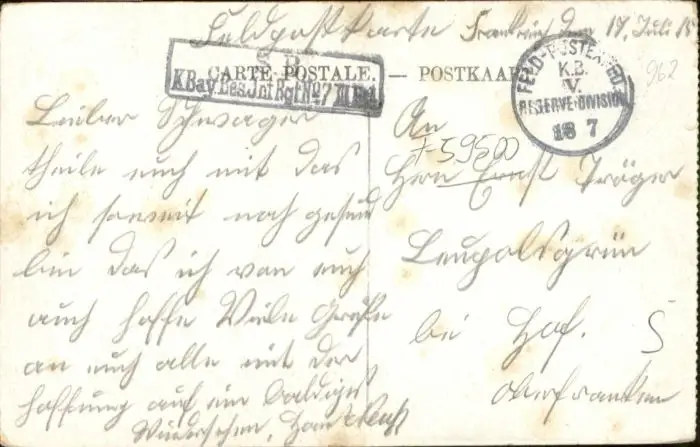 Feldpostkarte Frankreich den 17. Juli 15
S. B.
K.Bay.Res.Inf.Rgt.No 7 III Bat.
CARTE POSTALE. — POSTKAAR
FELD-POSTEXPED
K.B.
V.
RESERVE-DIVISION
18 7
962
Lieber Schwager
theile euch mit das
ich soweit noch gesund
bin das ich von euch
auch hoffe Viele Grüße
an euch alle mit der
Hoffnung auf ein baldiges
Wiedersehen,
An
+59500
Herrn Ernst Tröger
Leupolsgrün
bei Hof. 5
Oberfranken